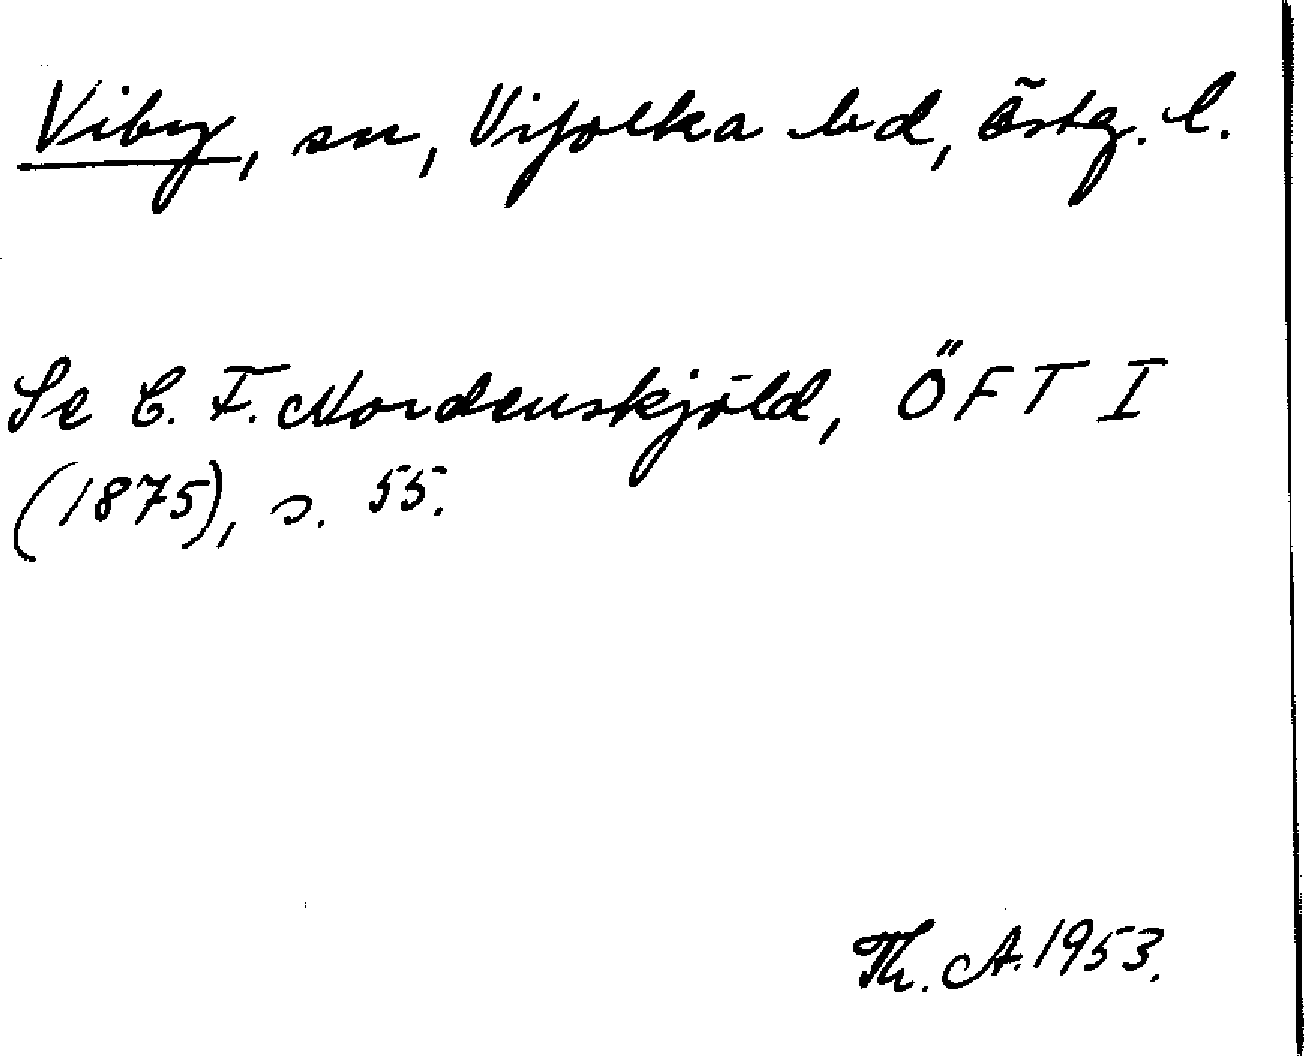 Viby, sn, Vifolka hd, Östg. l.
Se C. F. Nordenskjöld, ÖFT I
(1875), s. 55.
Th. A. 1953.